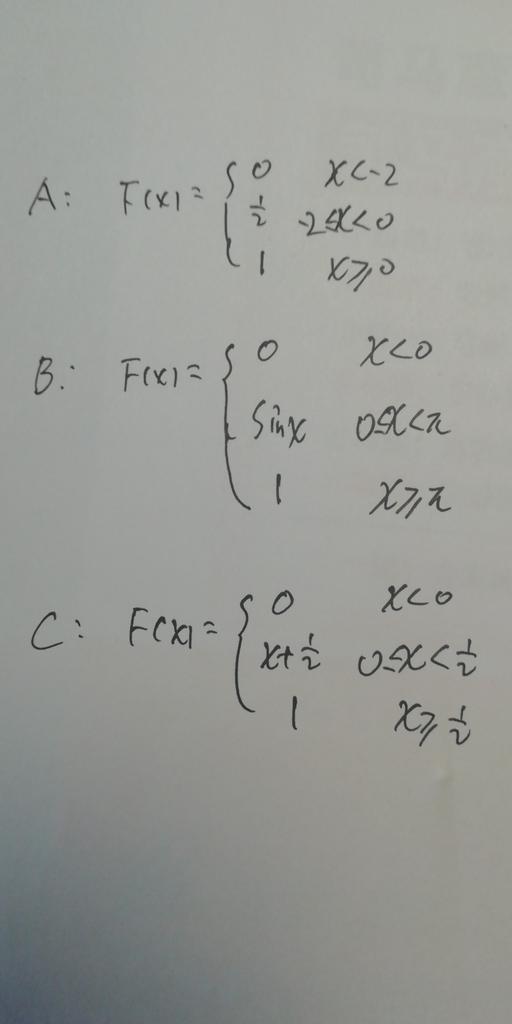 A: F(x) = { 0 x<-2
1/2 -2≤x<0
1 x≥0
B: F(x) = { 0 x<0
Sinx 0≤x<π
1 x≥π
C: F(x) = { 0 x<0
x+1/2 0≤x<1/2
1 x≥1/2